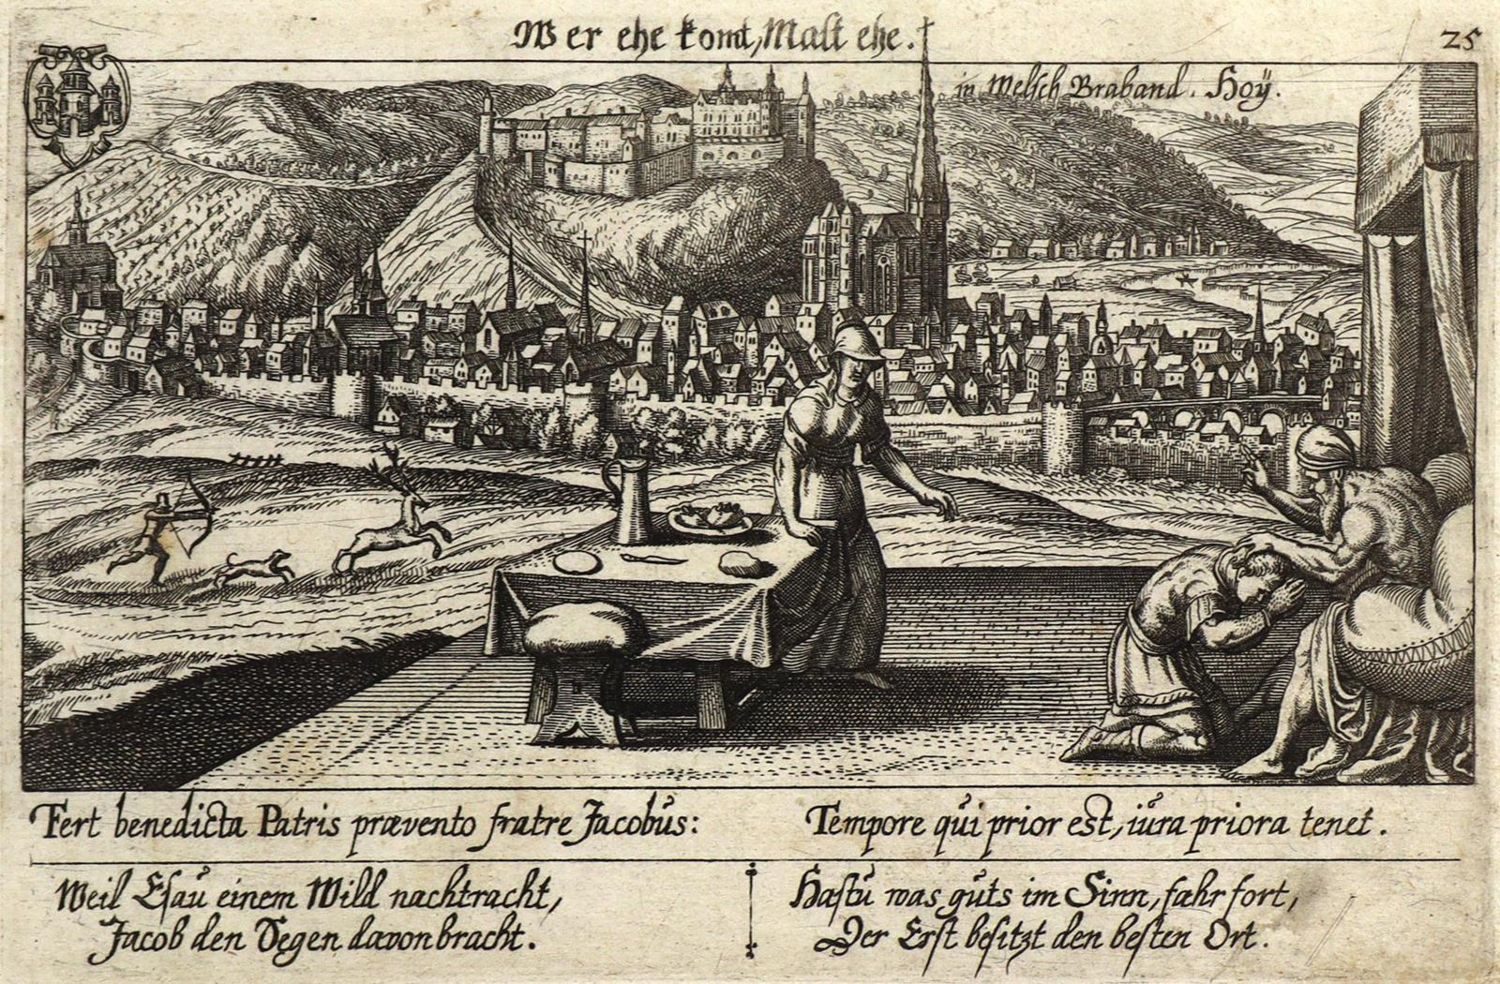 Wer ehe komt, Malt ehe.
25
in Welsch Braband. Hoÿ.
Fert benedicta Patris prævento fratre Jacobŭs:
Tempore qŭi prior est, iŭra priora tenet.
Weil Esaŭ einem Wild nachtracht,
Jacob den Segen davon bracht.
Hastŭ was gŭts im Sinn, fahr fort,
Der Erst besitzt den besten Ort.